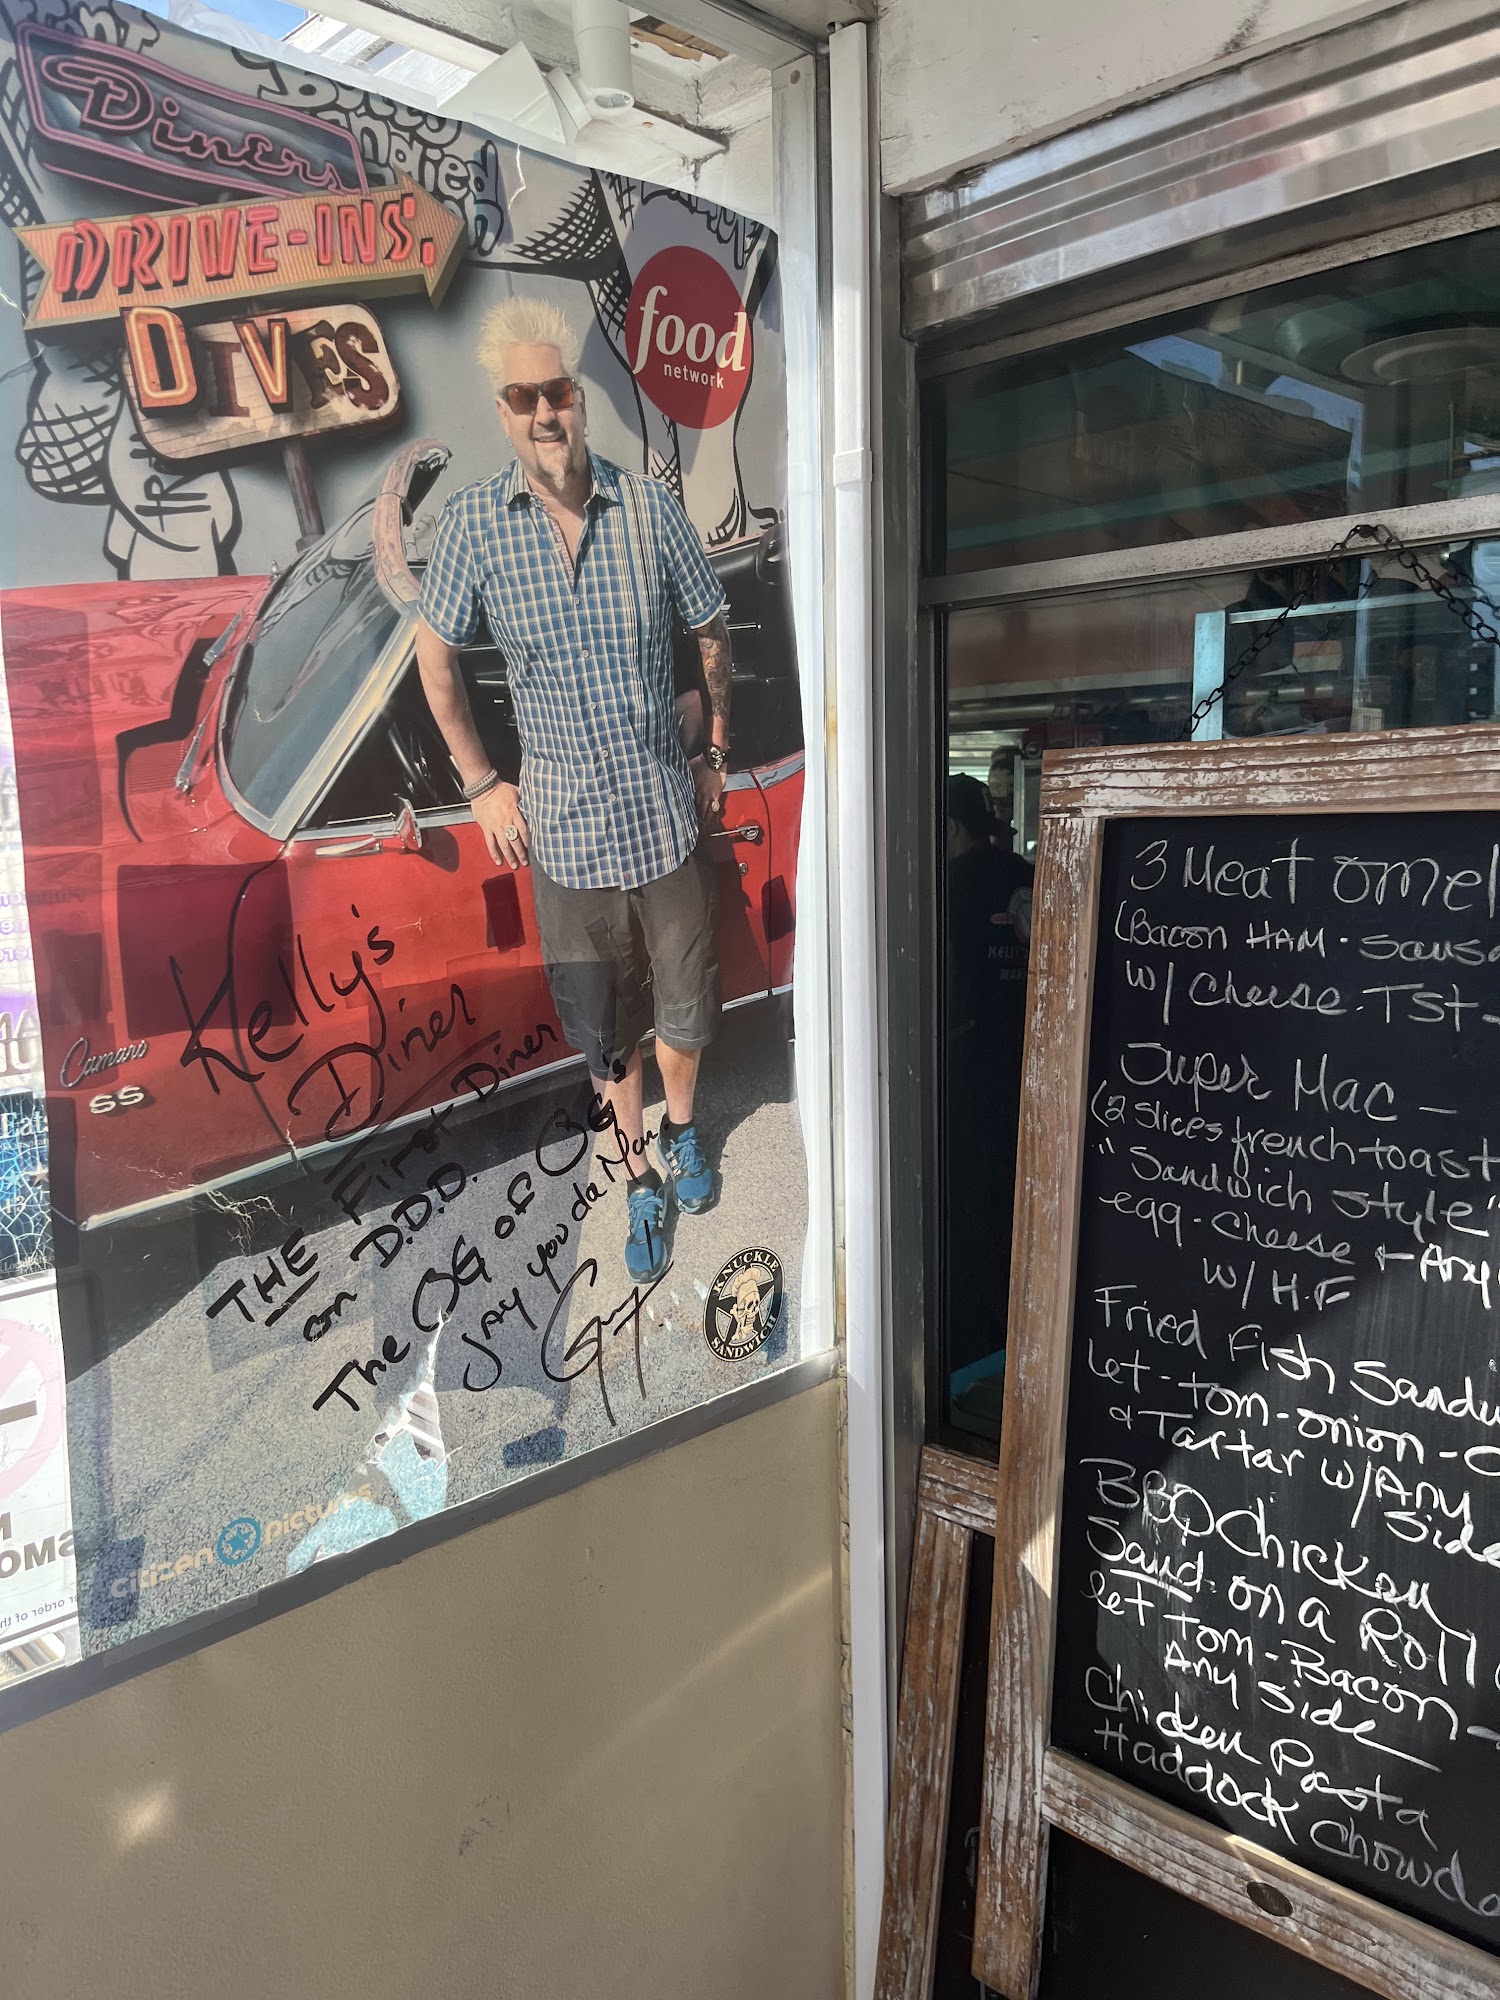 Diners
DRIVE-INS,
DIVES
food
network
Camaro
SS
Kelly's
Diner
THE First Diner
on D.D.D.
The OG of OG's
JAY you da Man.
Guy
KNUCKLE
SANDWICH
citizen pictures
Eat
3 Meat omel
(Bacon HAM. Sausa
w/ Cheese. Tst -
Super Mac -
(2 slices french toast
"Sandwich Style"
egg. Cheese + Any
w/ H.F
Fried Fish Sandw
let-tom-onion-c
& Tartar w/ Any
Side
BBQ Chicken
Sand on a Roll
let tom-Bacon-
Any Side
Chicken Pasta
Haddock Chowd